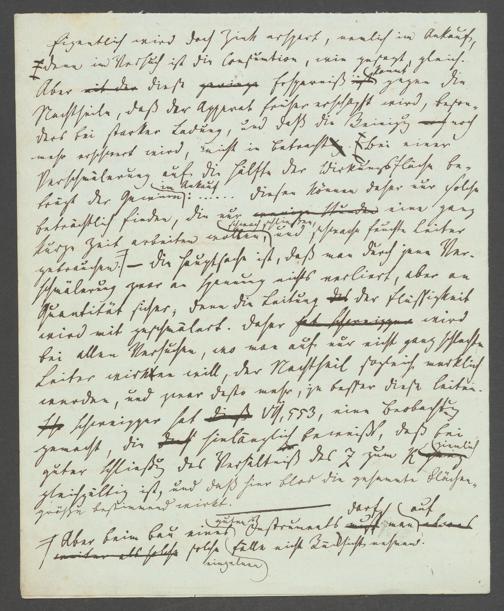 Eigentlich wird doch Zink erspart, nemlich im Ankauf,
denn im Versuch ist die Consumtion, wie gesagt, gleich.
Aber diese Ersparniß kommt gegen die
Nachtheile, daß der Apparat früher erschöpft wird, beson-
ders bei starker Ladung, und daß die Reinigung noch
mehr erschwert wird, nicht in Betracht. bei einer
Verschmälerung auf die Hälfte der Wirkungsfläche be-
trägt der Gewinn im Ankauf ...... diesen können daher nur solche
beträchtlich finden, die nur eine ganz
kurze Zeit arbeiten wollen, und schwache feuchte Leiter
gebrauchen. — Die Hauptsache ist, daß man durch jene Ver-
schmälerung zwar an Spannung nichts verliert, aber an
Quantität sicher, denn die Leitung der Flüssigkeit
wird mit geschmälert. Daher wird
bei allen Versuchen, wo man auf nur nicht ganz schlechte
Leiter wirken will, der Nachtheil sogleich merklich
werden, und zwar desto mehr, je besser diese leiten.
Schweigger hat VII, 553, eine Beobachtung
gemacht, die hinlänglich beweißt, daß bei
guter Schließung des Verhältniß des Z zum K ziemlich
gleichgültig ist, und daß hier blos die gesammte Flächen-
größe bestimmend wirkt.
Aber beim Bau eines Instruments darf man auf
solche einzelnen Fälle nicht Rücksicht nehmen.